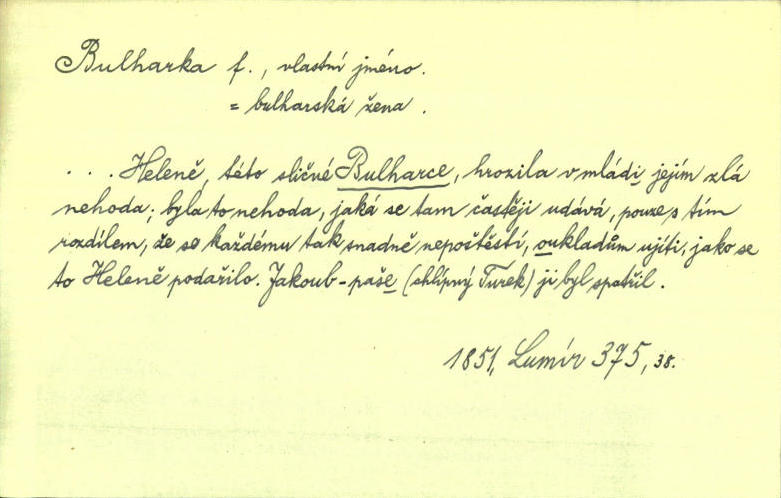 Bulharka f., vlastní jméno.
= bulharská žena.
. . . Heleně, této sličné Bulharce, hrozila v mládi jejím zlá
nehoda; byla to nehoda, jaká se tam častěji udává, pouze s tím
rozdílem, že se každému tak snadně nepoštěstí, oukladům ujíti, jako se
to Heleně podařilo. Jakoub-paše (chlípný Turek) ji byl spatřil.
1851, Lumír 375, 38.